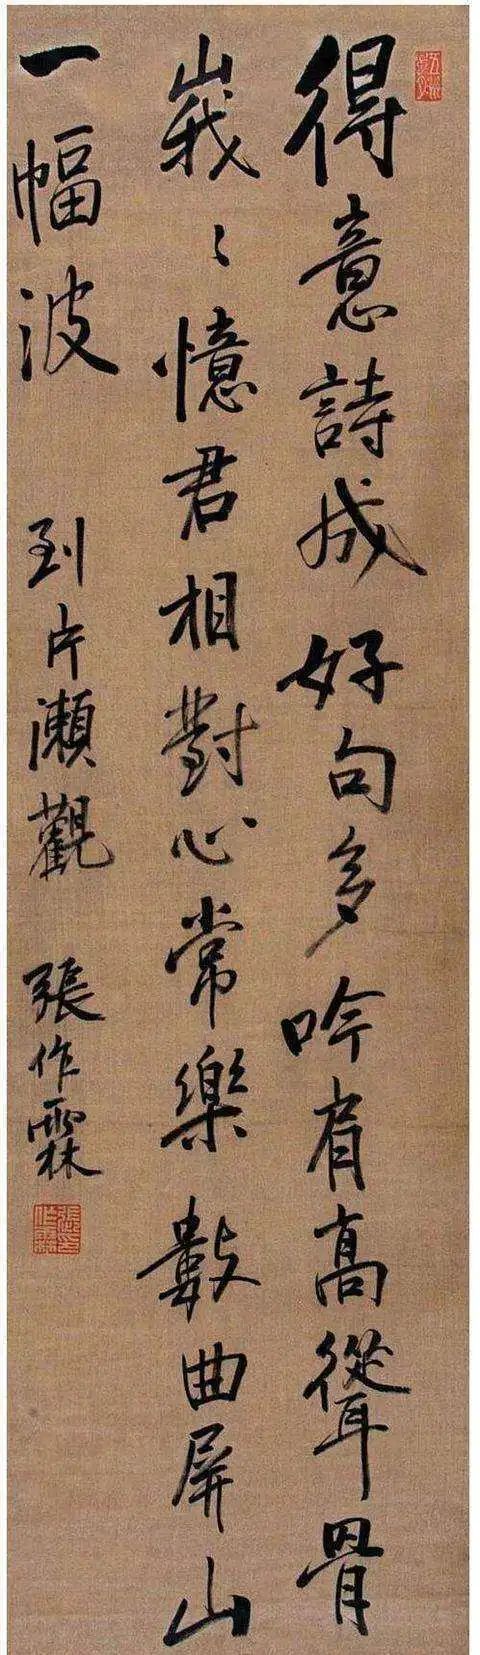 得意詩成好句多吟肩高聳骨
峩〻憶君相對心常樂數曲屏山
一幅波 到片瀨觀 張作霖